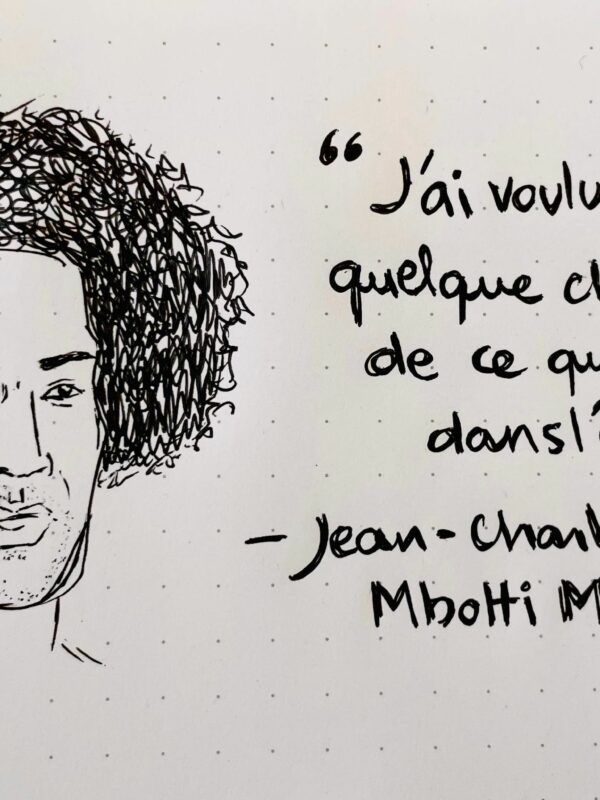 “ J'ai voulu
quelque ch
de ce qu
dans l'
— Jean-Charl
Mbotti M